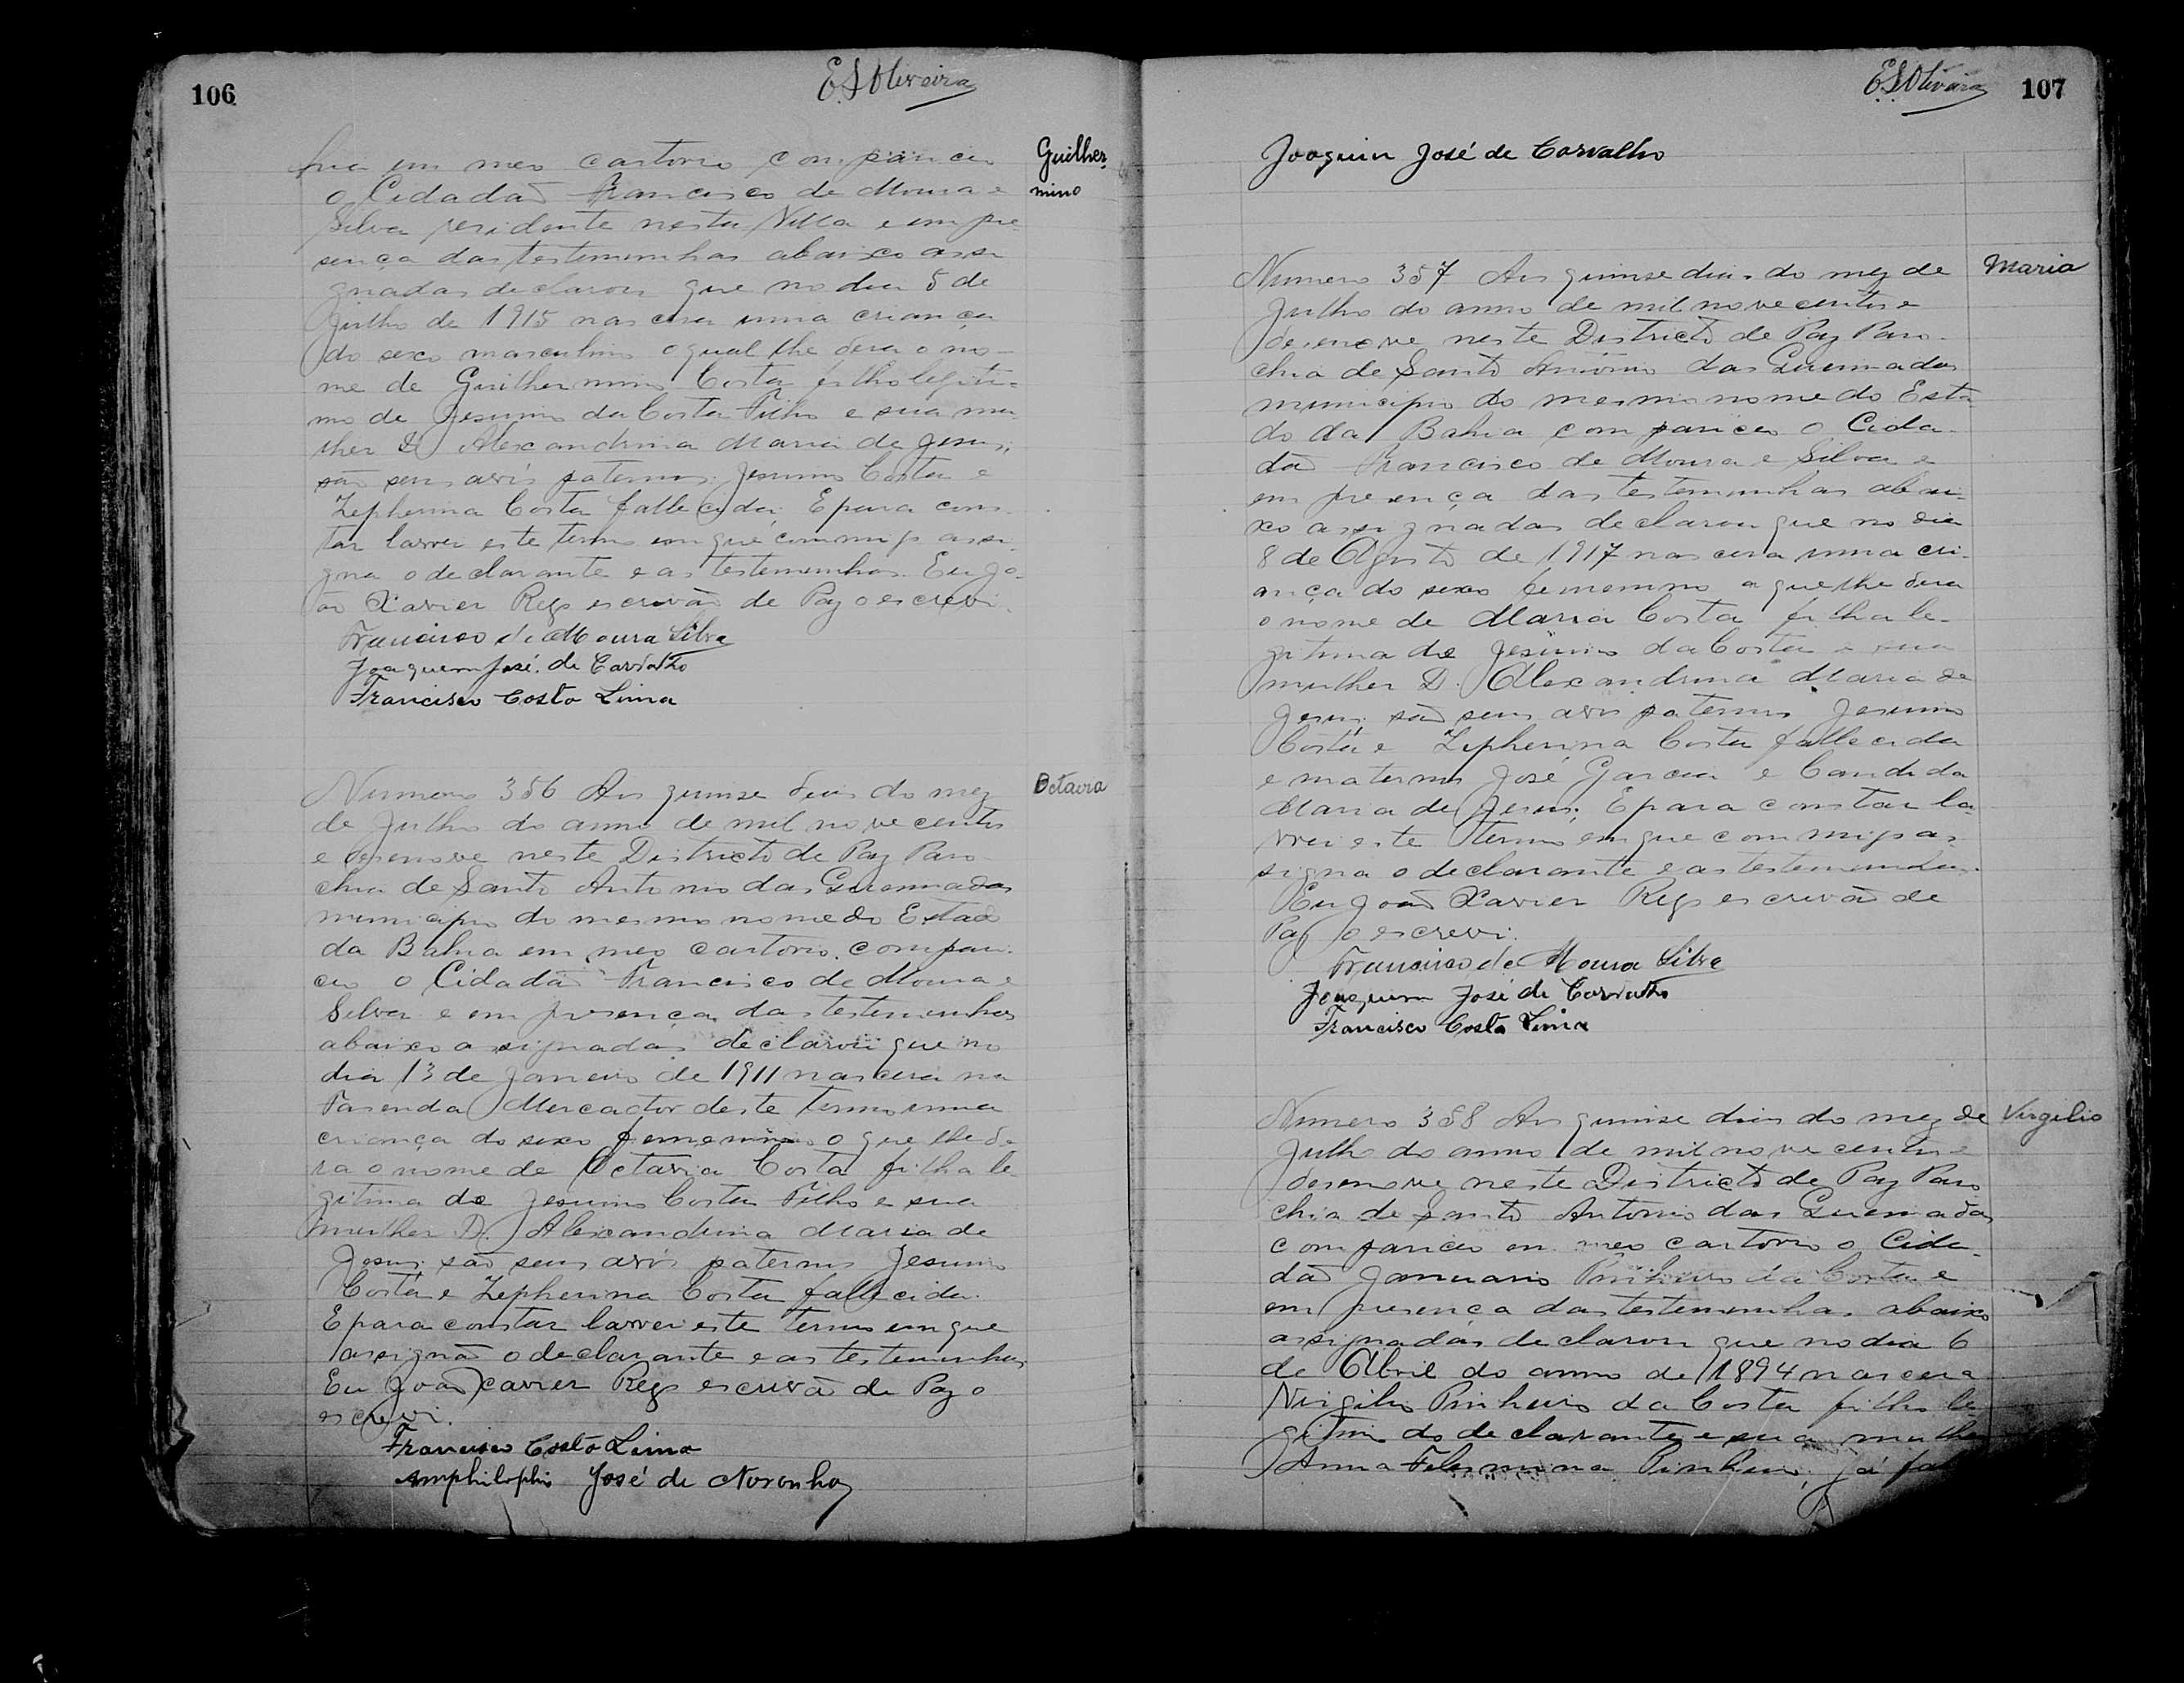 106
E.S.Oliveira
hia em meo cartorio compareceu
o Cidadão Francisco de Moura e
Silva residente nesta Villa e em pre
sença das testemunhas abaixo assi
gnadas declarou que no dia 5 de
Julho de 1915 nascera uma criança
do sexo masculino o qual lhe dera o no-
me de Guilhermino Costa filho legiti-
mo de Jesuino da Costa Filho e sua mu-
lher D. Alexandrina Maria de Jesus,
são seus avós paternos Jesuino Costa e
Zepherina Costa fallecida. E para cons-
tar lavrei este termo em que commigo assi
gna o declarante e as testemunhas. Eu Jo-
ão Xavier Rego escrivão de Paz o escrevi.
Francisco de Moura Silva
Joaquim José de Carvalho
Francisco Costa Lima
Guilher-
mino
Numero 356 Aos quinse dias do mez
de Julho do anno de mil nove centos
e desenove neste Districto de Paz Paro
chia de Santo Antonio das Queimadas
municipio do mesmo nome do Estado
da Bahia em meo cartorio, compare
ceu o Cidadão Francisco de Moura e
Silva e em presença das testemunhas
abaixo assignadas declarou que no
dia 13 de Janeiro de 1911 nascera na
Fasenda Mercador deste termo uma
criança do sexo femenino o que lhe de
ra o nome de Octavia Costa filha le
gitima de Jesuino Costa Filho e sua
mulher D. Alexandrina Maria de
Jesus são seus avós paternos Jesuino
Costa e Zepherina Costa fallecida.
E para constar lavrei este termo em que
assignão o declarante e as testemunhas
Eu João Xavier Rego escrivão de Paz o
escrevi.
Francisco Costa Lima
Amphilophio José de Noronha
Octavia
E.S.Oliveira
107
Joaquim José de Carvalho
Numero 357 Aos quinse dias do mez de
Julho do anno de mil nove centos e
desenove neste Districto de Paz Paro-
chia de Santo Antonio das Queimadas
municipio do mesmo nome do Esta
do da Bahia compareceu o Cida-
dão Francisco de Moura e Silva e
em presença das testemunhas abai-
xo assignadas declarou que no dia
8 de Agosto de 1917 nascera uma cri-
ança do sexo femenino a que lhe dera
o nome de Maria Costa filha le-
gitima de Jesuino da Costa e sua
mulher D. Alexandrina Maria de
Jesus, são seus avós paternos Jesuino
Costa e Zepherina Costa fallecida
e maternos José Garcia e Candida
Maria de Jesus; E para constar la-
vrei este termo em que commigo as-
signa o declarante e as testemunhas.
Eu João Xavier Rego escrivão de
Paz o escrevi.
Francisco de Moura Silva
Joaquim José de Carvalho
Francisco Costa Lima
Maria
Numero 358 Aos quinse dias do mez de
Julho do anno de mil nove centos e
desenove neste Districto de Paz Paro
chia de Santo Antonio das Queimadas
compareceu em meo cartorio o Cida-
dão Januario Pinheiro da Costa e
em presença das testemunhas abaixo
assignadas declarou que no dia 6
de Abril do anno de 1894 nascera
Virgilio Pinheiro da Costa filho le-
gitimo do declarante e sua mulher
Anna Pinheiro, já
Virgilio